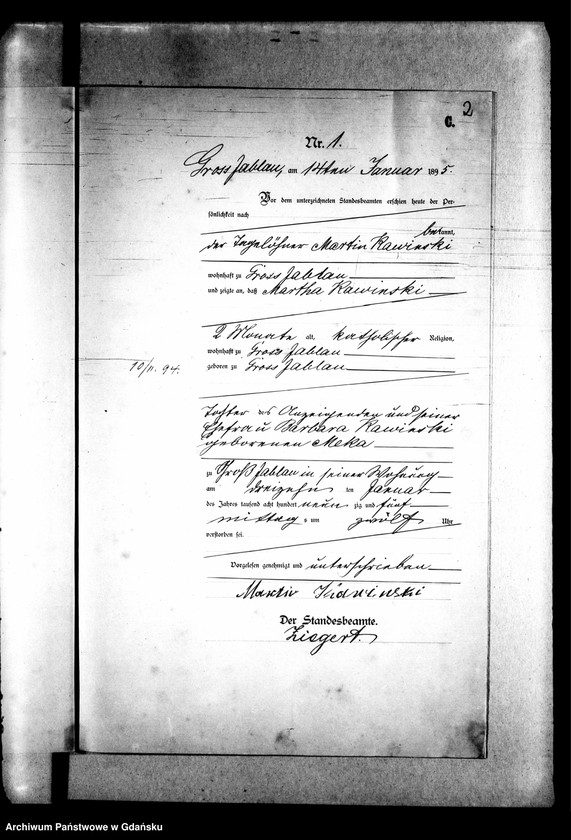 2
C.
Nr. 1.
Gross Jablau, am 14ten Januar 1895.
Vor dem unterzeichneten Standesbeamten erschien heute der Per-
sönlichkeit nach
bekannt,
der Tagelöhner Martin Kawinski
wohnhaft zu Gross Jablau
und zeigte an, daß Martha Kawinski
2 Monate alt, katholischer Religion,
wohnhaft zu Gross Jablau
10/11. 94. geboren zu Gross Jablau
Tochter des Anzeigenden und seiner
Ehefrau Barbara Kawinski
geborenen Meka
zu Groß Jablau in seiner Wohnung
am dreizehn ten Januar
des Jahres tausend acht hundert neun zig und fünf
mittag s um zwölf Uhr
verstorben sei.
Vorgelesen genehmigt und unterschrieben
Martin
Der Standesbeamte.
Ziegert.
Archiwum Państwowe w Gdańsku